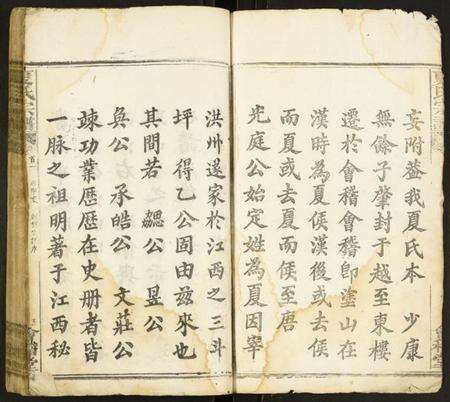 妄附葢我夏氏本 少康
無餘子肈封于越至東樓
遷於會稽會稽卽塗山在
漢時為夏侯漢後或去侯
而夏或去夏而侯至唐
光庭公始定姓為夏因宰
洪州遂家於江西之三斗
坪 得乙公固由兹來也
其間若 勰公 昱公
奐公 承皓公 文莊公
竦功業歷歷在史册者皆
一脉之祖明著于江西秘
夏氏宗譜
會稽堂